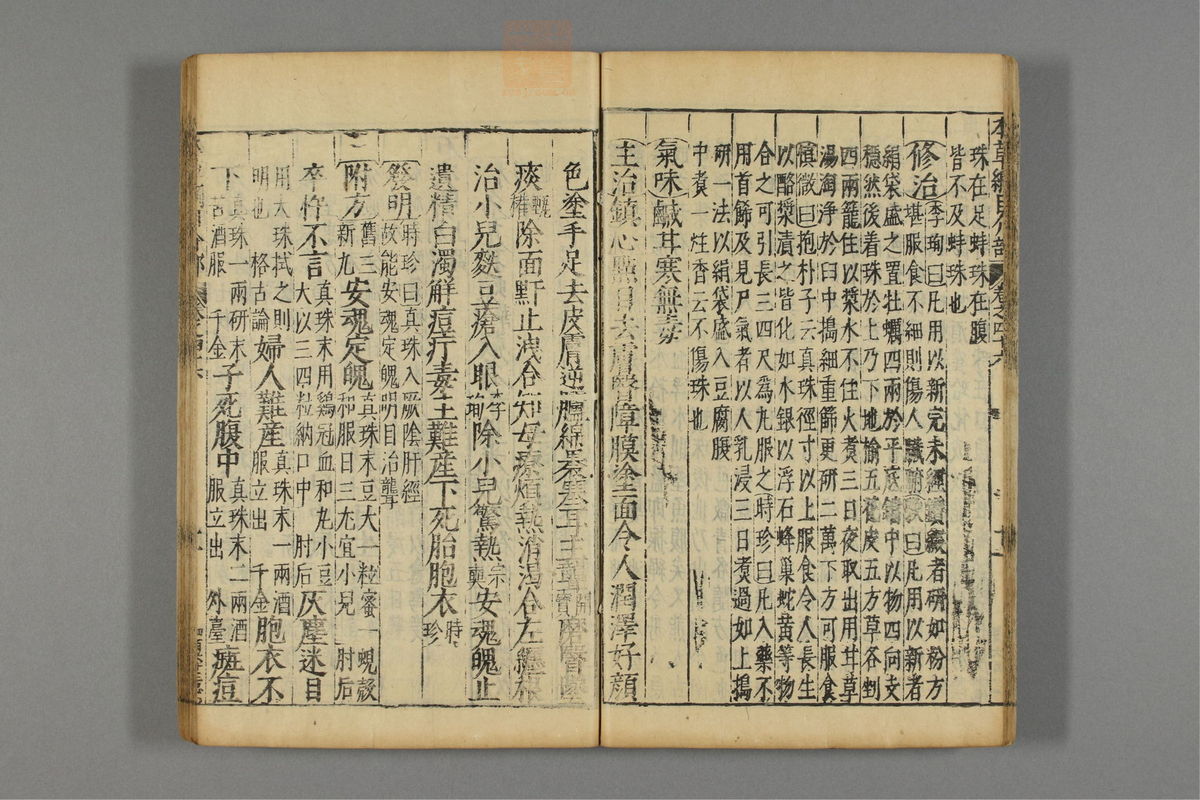 本草綱目介部 卷之四十六
珠在足蚌珠在腹
皆不及蚌珠也
修治李珣曰凡用以新完未經鑽綴者研如粉方
堪服食不細則傷人臟腑斅曰凡用以新者
絹袋盛之置牡蠣四兩於平底鐺中以物四向支
穩然後着珠於上乃下地榆五花皮五方草各剉
四兩籠住以漿水不住火煮三日夜取出用甘草
湯淘淨於臼中搗細重篩更研二萬下方可服食
慎微曰抱朴子云真珠徑寸以上服食令人長生
以酪漿漬之皆化如水銀以浮石蜂巢蛇黃等物
合之可引長三四尺為丸服之時珍曰凡入藥不
用首飾及見尸氣者以人乳浸三日煮過如上搗
研一法以絹袋盛入豆腐腹
中煮一炷香云不傷珠也
氣味鹹甘寒無毒
主治鎮心點目去膚瞖障膜塗面令人潤澤好顏
色塗手足去皮膚逆臚綿裹塞耳主聾開寶磨瞖墜
痰甄權除面䵟止洩合知母療煩熱消渴合左纏根
治小兒麩豆瘡入眼李珣除小兒驚熱宗奭安魂魄止
遺精白濁解痘疔毒主難產下死胎胞衣時珍
發明時珍曰真珠入厥陰肝經
故能安魂定魄明目治聾
附方舊三新九安魂定魄真珠末豆大一粒蜜一蜆殼
和服日三尤宜小兒 肘后
卒忤不言真珠末用鷄冠血和丸小豆
大以三四粒納口中 肘后灰塵迷目
用大珠拭之則
明也 格古論婦人難產真珠末一兩酒
服立出 千金胞衣不
下真珠一兩研末
苦酒服 千金子死腹中真珠末二兩酒
服立出 外臺癍痘